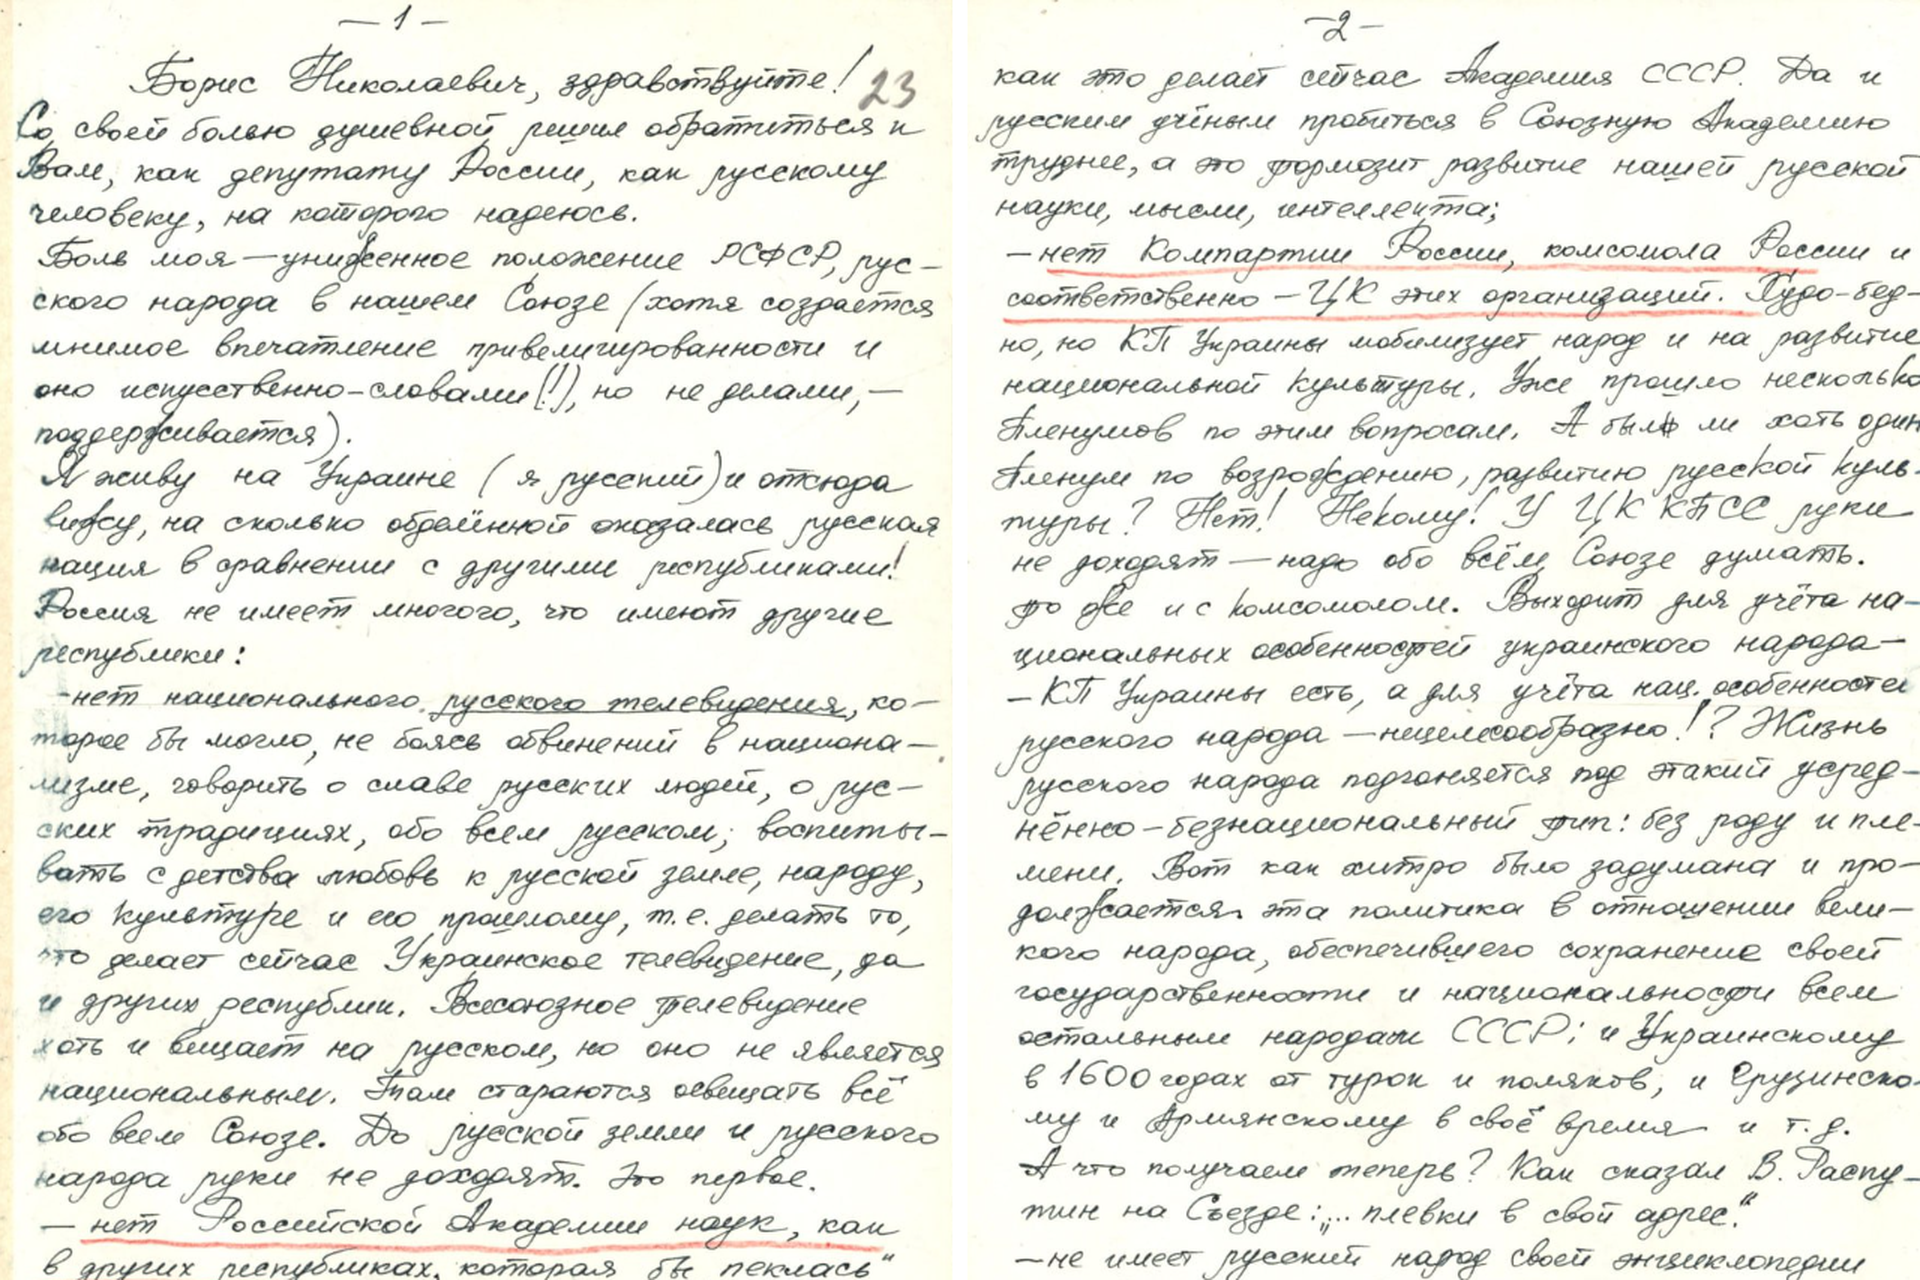 — 1 —
Борис Николаевич, здравствуйте!
23
Со своей болью душевной решил обратиться к
Вам, как депутату России, как русскому
человеку, на которого надеюсь.
Боль моя — униженное положение РСФСР, рус-
ского народа в нашем Союзе (хотя создается
мнимое впечатление привелигированности и
оно искусственно-словами(!), но не делами, —
поддерживается).
Я живу на Украине (я русский) и отсюда
вижу, на сколько обделённой оказалась русская
нация в сравнении с другими республиками!
Россия не имеет многого, что имеют другие
республики:
-нет национального русского телевидения, ко-
торое бы могло, не боясь обвинений в национа-
лизме, говорить о славе русских людей, о рус-
ских традициях, обо всем русском; воспиты-
вать с детства любовь к русской земле, народу,
его культуре и его прошлому, т.е. делать то,
что делает сейчас Украинское телевидение, да
и других республик. Всесоюзное телевидение
хоть и вещает на русском, но оно не является
национальным. Там стараются освещать всё
обо всем Союзе. До русской земли и русского
народа руки не доходят. Это первое.
— нет Российской Академии наук, как
в других республиках, которая бы пеклась"
— 2 —
как это делает сейчас Академия СССР. Да и
русским учёным пробиться в Союзную Академию
труднее, а это тормозит развитие нашей русской
науки, мысли, интеллекта;
— нет Компартии России, комсомола России и
соответственно — ЦК этих организаций. Худо-бед-
но, но КП Украины мобилизует народ и на развитие
национальной культуры. Уже прошло несколько
Пленумов по этим вопросам. А был ли хоть один
Пленум по возрождению, развитию русской куль-
туры? Нет! Некому! У ЦК КПСС руки
не доходят — надо обо всём Союзе думать.
То же и с комсомолом. Выходит для учёта на-
циональных особенностей украинского народа —
— КП Украины есть, а для учёта нац. особенностей
русского народа — нецелесообразно!? Жизнь
русского народа подгоняется под этакий усред-
нённо-безнациональный тип: без роду и пле-
мени. Вот как хитро было задумана и про-
должается эта политика в отношении вели-
кого народа, обеспечившего сохранение своей
государственности и национальности всем
остальным народам СССР; и Украинскому
в 1600 годах от турок и поляков, и Грузинско-
му и Армянскому в своё время и т.д.
А что получаем теперь? Как сказал В. Распу-
тин на Съезде: „... плевки в свой адрес."
— не имеет русский народ своей энциклопедии